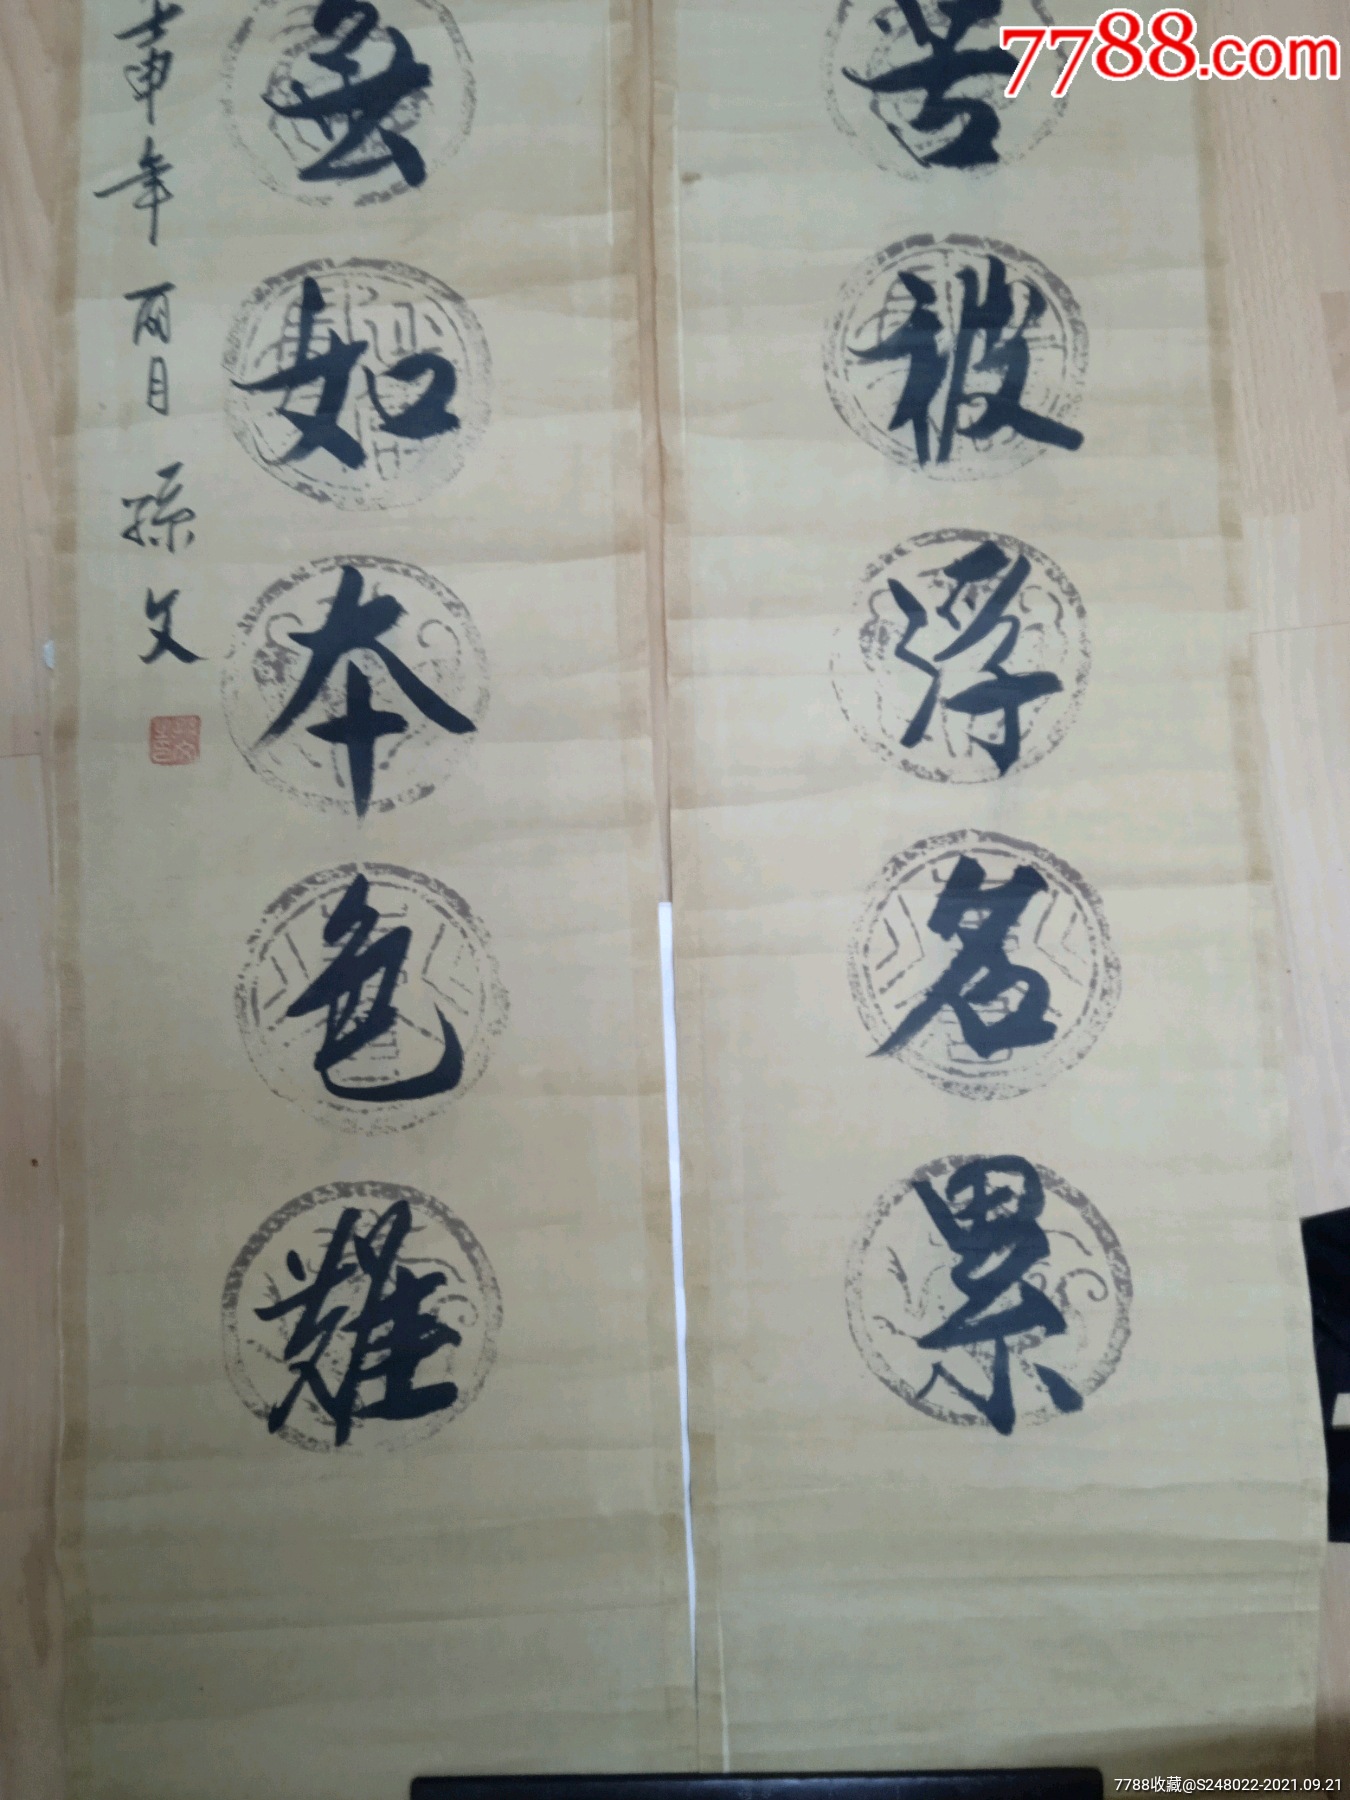 7788.com
苦被浮名累
無如本色難
壬申年 丙月 孫文
7788收藏@S248022-2021.09.21